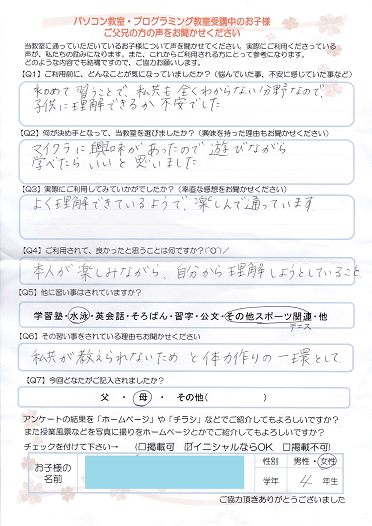 パソコン教室・プログラミング教室受講中のお子様
ご父兄の方の声をお聞かせください
当教室に通っていただいているお子様について声をお聞かせてください。実際にご利用くださっている
声が、私たちの励みになります。また、これからご利用される方にとって参考になります。
どのような内容でも結構ですので、ご協力お願いします。
【Q1】ご利用前に、どんなことが気になっていましたか？（悩んでいた事、不安に感じていた事など）
初めて習うことで、私共も全くわからない分野なので、
子供に理解できるか不安でした
【Q2】何が決め手となって、当教室を選びましたか？（興味を持った理由もお聞かせください）
マイクラに興味があったので遊びながら
学べたらいいと思いました
【Q3】実際にご利用してみていかがでしたか？（率直な感想をお聞かせください）
よく理解できているようで、楽しんで通っています
【Q4】ご利用されて、良かったと思うことは何ですか？(^O^)／
本人が楽しみながら、自分から理解しようとしていること
【Q5】他に習い事はされていますか？
学習塾・水泳・英会話・そろばん・習字・公文・その他スポーツ関連・他
テニス
【Q6】その習い事をされている理由もお聞かせください
私共が教えられないためと体力作りの一環として
【Q7】今回どなたがご記入されましたか？
父・母・その他（　　　　　）
アンケートの結果を「ホームページ」や「チラシ」などでご紹介してもよろしいですか？
また授業風景などを写真に撮りをホームページとかでご紹介してもよろしいですか？
チェックを付けて下さい→ （□掲載可 ☑イニシャルならOK □掲載不可）
お子様の
名前
性別 男性・女性
学年 4 年生
ご協力頂きありがとうございました